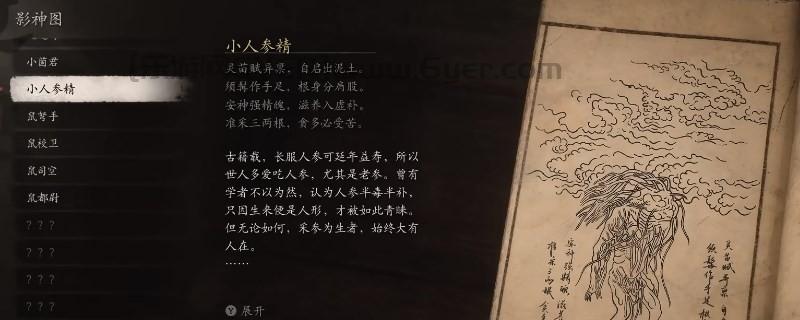 影神图
小菌君
小人参精
鼠弩手
鼠校卫
鼠司空
鼠都尉
? ? ?
? ? ?
? ? ?
? ? ?
小人参精
灵苗赋异禀，自启出泥土。
须髯作手足，根身分肩股。
安神强精魄，滋养入虚补。
准采三两根，贪多必受苦。
古籍载，长服人参可延年益寿，所以
世人多爱吃人参，尤其是老参。曾有
学者不以为然，认为人参半毒半补，
只因生来便是人形，才被如此青睐。
但无论如何，采参为生者，始终大有
人在。
……
Y 展开
www.6yer.com
灵苗赋异禀 自
须髯作手足 根
安神强精魄 滋养
准采三两根 贪多